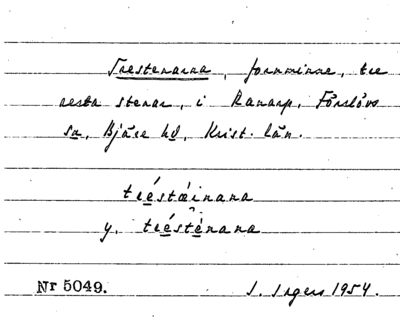 Trestenarna, fornminne, tre
resta stenar, i Ranarp, Förslövs
sn, Bjäre hd, Krist. län.
treéstæinana
y. treéstènana
Nr 5049.
I. Ingers 1954.